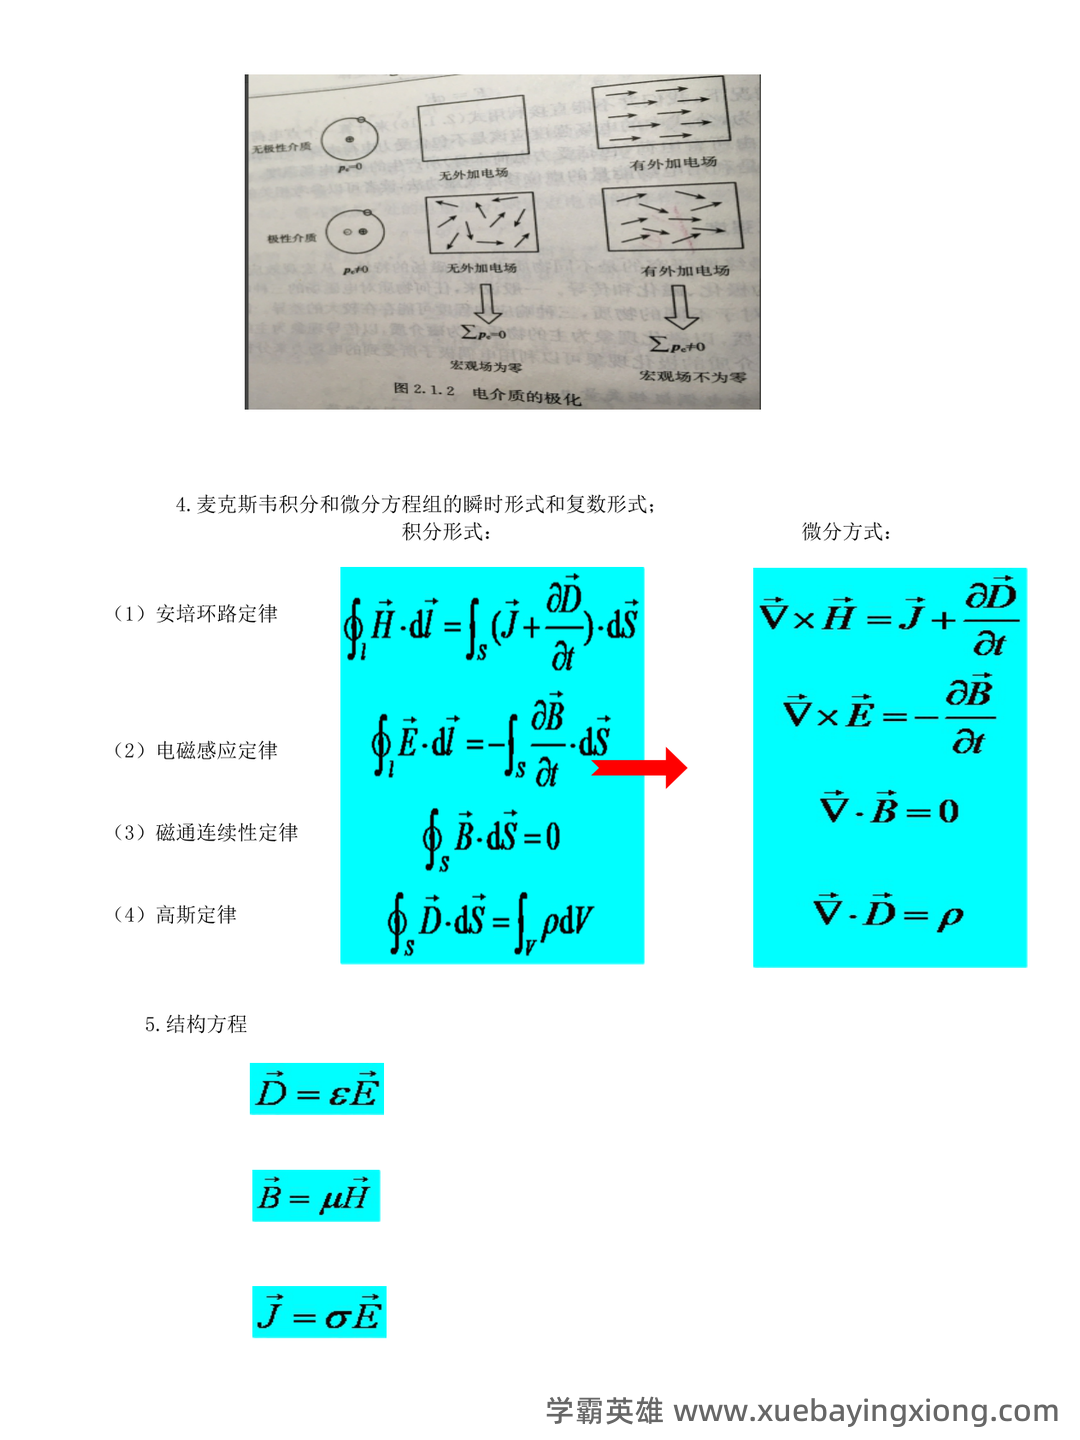 无极性介质
pₑ=0
无外加电场
有外加电场
极性介质
pₑ≠0
无外加电场
有外加电场
∑pₑ=0
∑pₑ≠0
宏观场为零
宏观场不为零
图 2.1.2 电介质的极化
4.麦克斯韦积分和微分方程组的瞬时形式和复数形式;
积分形式: 微分方式:
(1)安培环路定律 ∮_l H⃗·dl⃗=∫_S(J⃗+∂D⃗/∂t)·dS⃗ ∇⃗×H⃗=J⃗+∂D⃗/∂t
(2)电磁感应定律 ∮_l E⃗·dl⃗=-∫_S ∂B⃗/∂t·dS⃗ ∇⃗×E⃗=-∂B⃗/∂t
(3)磁通连续性定律 ∮_S B⃗·dS⃗=0 ∇⃗·B⃗=0
(4)高斯定律 ∮_S D⃗·dS⃗=∫_V ρdV ∇⃗·D⃗=ρ
5.结构方程
D⃗=εE⃗
B⃗=μH⃗
J⃗=σE⃗
学霸英雄 www.xuebayingxiong.com